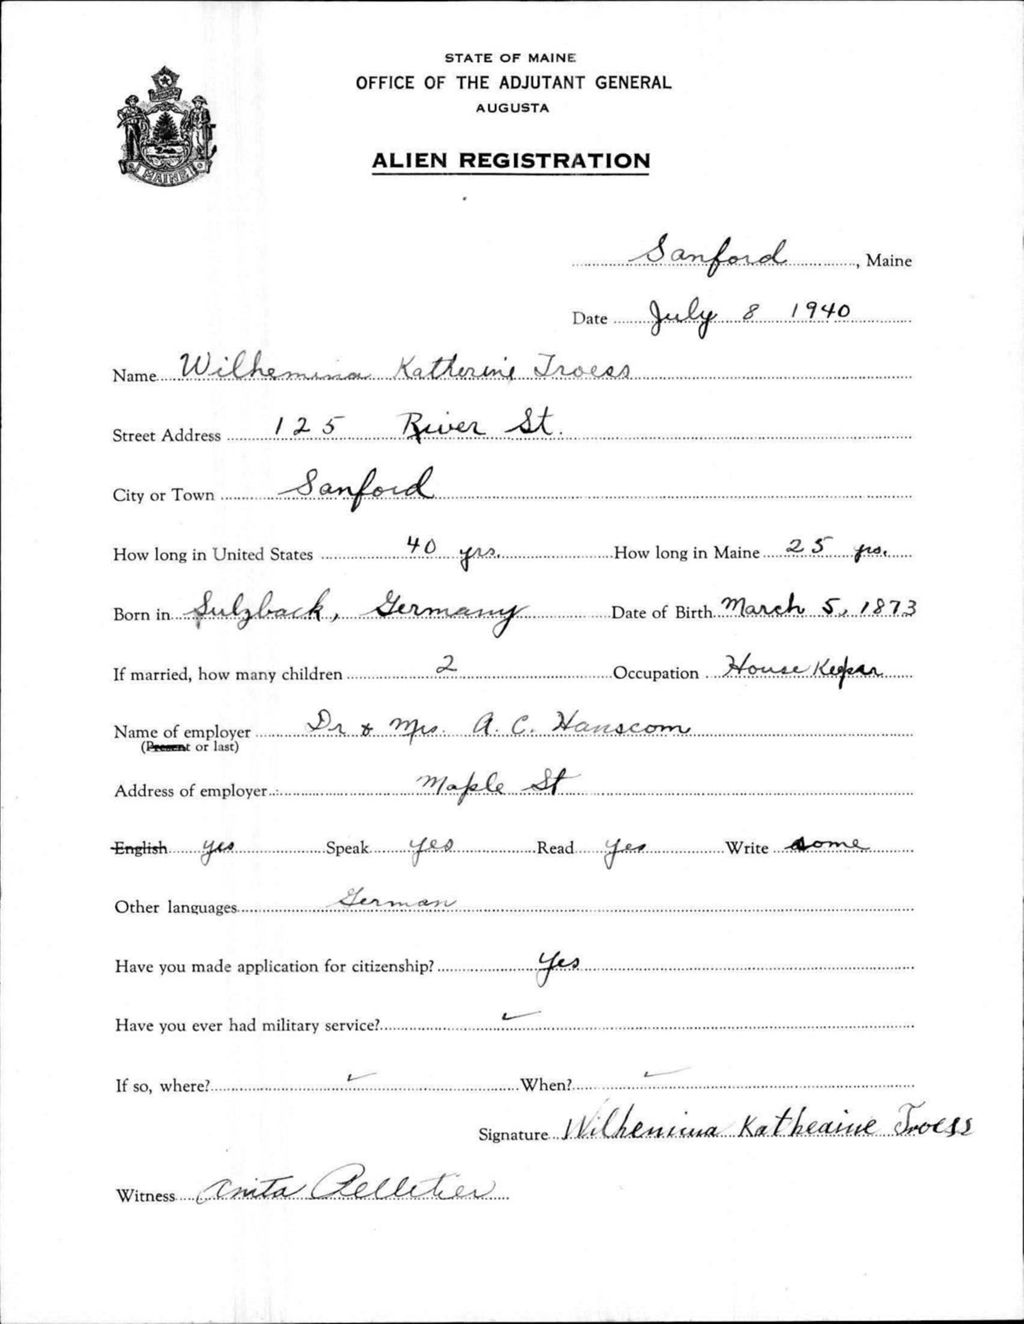 STATE OF MAINE
OFFICE OF THE ADJUTANT GENERAL
AUGUSTA
ALIEN REGISTRATION
MAINE
Sanford, Maine
Date July 8 1940
Name Wilhemina Katherine Troess
Street Address 125 River St.
City or Town Sanford
How long in United States 40 yrs. How long in Maine 25 yrs.
Born in Sulzback, Germany Date of Birth March 5, 1873
If married, how many children 2 Occupation House Keeper
Name of employer Dr & Mrs. A. C. Hanscom
(Present or last)
Address of employer Maple St
English yes Speak yes Read yes Write some
Other languages German
Have you made application for citizenship? Yes
Have you ever had military service? ✓
If so, where? ✓ When? ✓
Signature Wilhemina Kathearine Troess
Witness Anita Pelletier